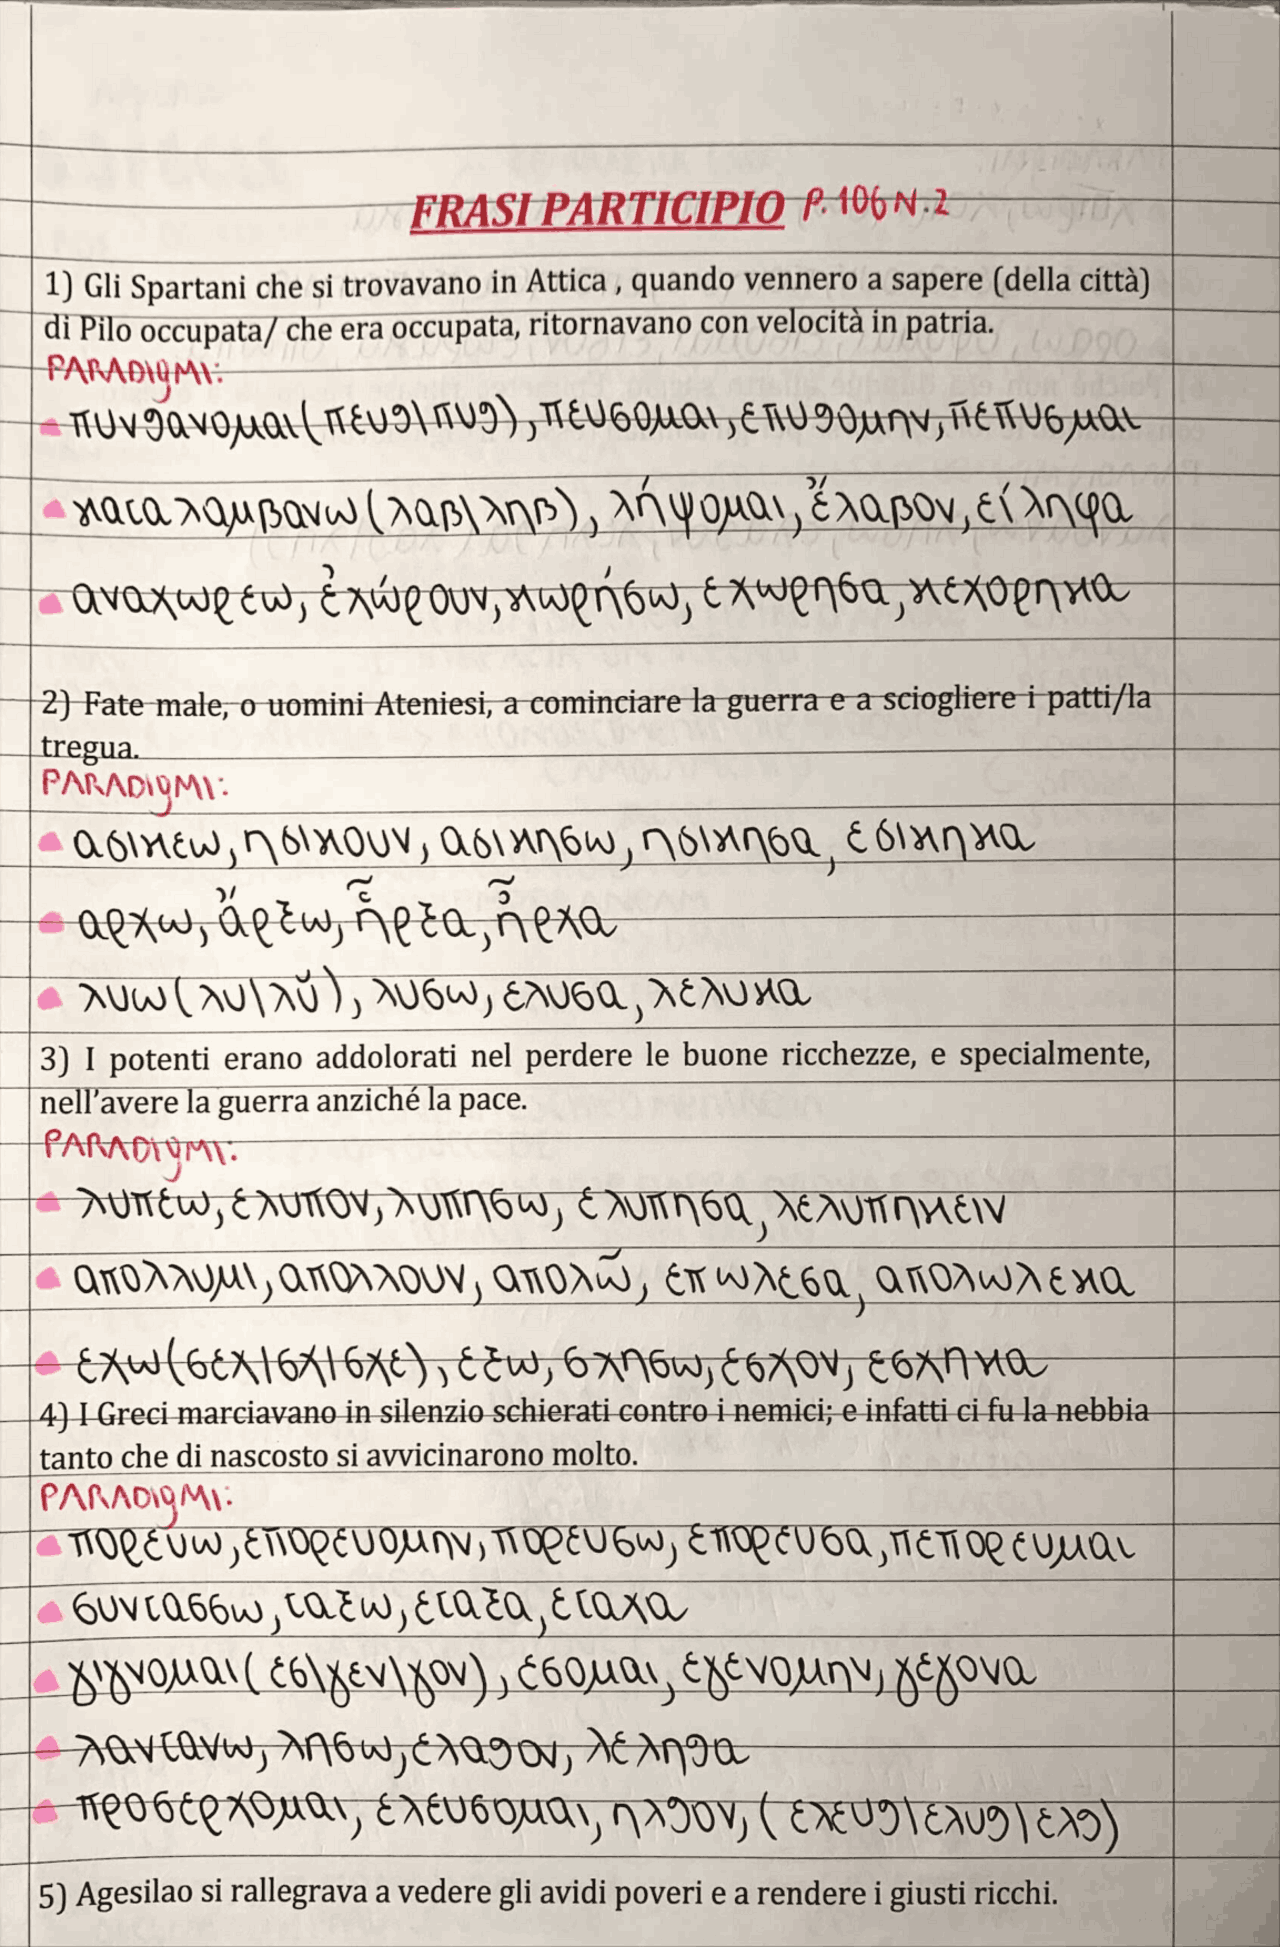 FRASI PARTICIPIO P. 106 N. 2
1) Gli Spartani che si trovavano in Attica , quando vennero a sapere (della città)
di Pilo occupata/ che era occupata, ritornavano con velocità in patria.
PARADIGMI:
πυνθανομαι(πευθ|πυθ), πευσομαι, επυθομην, πεπυσμαι
καταλαμβανω(λαβ|ληβ), λήψομαι, ἔλαβον, είληφα
αναχωρεω, ἐχώρουν, κωρήσω, εχωρησα, κεχορηκα
2) Fate male, o uomini Ateniesi, a cominciare la guerra e a sciogliere i patti/la
tregua.
PARADIGMI:
ασικεω, ησικουν, ασικησω, ησικησα, εσικηκα
αρχω, ἄρξω, ἧρξα, ἦρχα
λυω(λυ|λῠ), λυσω, ελυσα, λελυκα
3) I potenti erano addolorati nel perdere le buone ricchezze, e specialmente,
nell'avere la guerra anziché la pace.
PARADIGMI:
λυπέω, ελυπον, λυπησω, ελυπησα, λελυπηκειν
απολλυμι, απολλουν, απολῶ, επωλεσα, απολωλεκα
εχω(σεχ|σχ|σχε), εξω, σχησω, εσχον, εσχηκα
4) I Greci marciavano in silenzio schierati contro i nemici; e infatti ci fu la nebbia
tanto che di nascosto si avvicinarono molto.
PARADIGMI:
πορευω, επορευομην, πορευσω, επορευσα, πεπορευμαι
συντασσω, ταξω, εταξα, εταχα
γιγνομαι(εσ|γεν|γον), εσομαι, εγενομην, γεγονα
λαντανω, λησω, ελαθον, λεληθα
προσερχομαι, ελευσομαι, ηλθον, (ελευθ|ελυθ|ελθ)
5) Agesilao si rallegrava a vedere gli avidi poveri e a rendere i giusti ricchi.